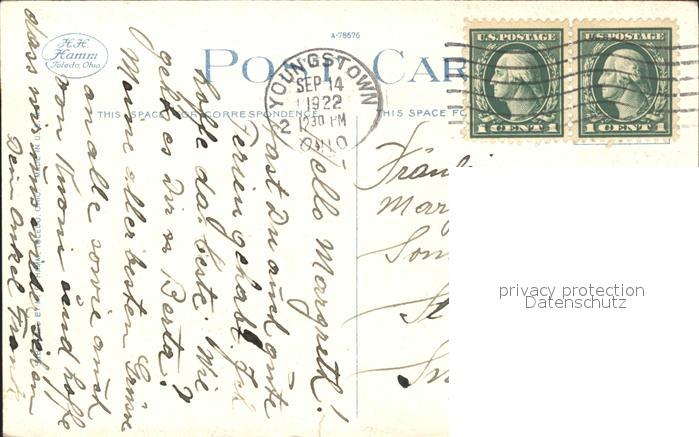 A-78676
H.H.
Hamm
Toledo, Ohio
POST CAR
THIS SPACE FOR CORRESPONDENCE
THIS SPACE FO
YOUNGSTOWN
SEP 14
1922
12 30 PM
OHIO
U.S. POSTAGE
1 CENT 1
U.S. POSTAGE
1 CENT 1
Hello Margreth!
Hast Du auch gute
Ferien gehabt. Ich
hoffe das beste. Wie
geht es Dir u Berta?
Meine allerbesten Grüsse
an alle sowie auch
von und hoffe
dass wir uns wieder sehen
Dein onkel Frank
Fräul
Mar
Son
St
privacy protection
Datenschutz